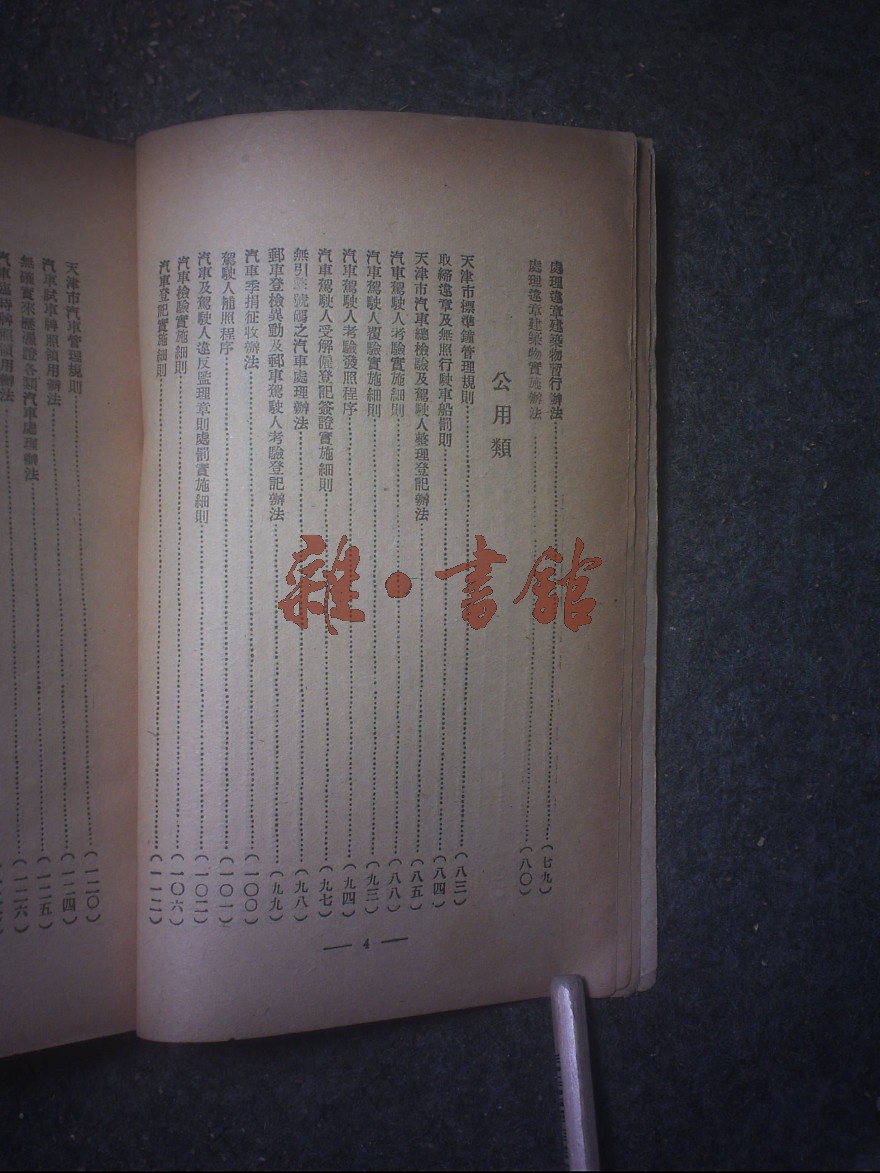 處理違章建築物暫行辦法……(七九)
處理違章建築物實施辦法……(八〇)
公用類
天津市標準鐘管理規則……(八三)
取締違章及無照行駛車船罰則……(八四)
天津市汽車總檢驗及駕駛人整理登記辦法……(八五)
汽車駕駛人考驗實施細則……(八八)
汽車駕駛人覆驗實施細則……(九三)
汽車駕駛人考驗發照程序……(九四)
汽車駕駛人受解僱登記簽證實施細則……(九七)
無引擎號碼之汽車處理辦法……(九八)
郵車登檢異動及郵車駕駛人考驗登記辦法……(九九)
汽車季捐征收辦法……(一〇〇)
駕駛人補照程序……(一〇一)
汽車及駕駛人違反監理章則處罰實施細則……(一〇二)
汽車檢驗實施細則……(一〇六)
汽車登記實施細則……(一一二)
— 4 —
天津市汽車管理規則……(一二〇)
汽車試車牌照領用辦法……(一二四)
無確實來歷憑證各類汽車處理辦法……(一二五)
汽車臨時牌照領用辦法……(一二六)
雜·書館